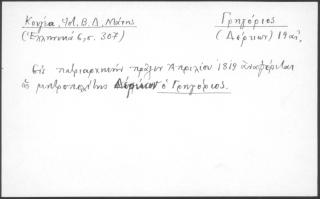 Κονρία, Ἠλ. Β. Δ. Μάνης
(Ἑλληνικά 6, σ. 307)
Γρηγόριος
(Δέρκων) 19 αἰ.
Εἰς πατριαρχικήν πρᾶξιν Ἀπριλίου 1819 ἀναφέρεται
ὡς μητροπολίτης Δέρκων ὁ Γρηγόριος.